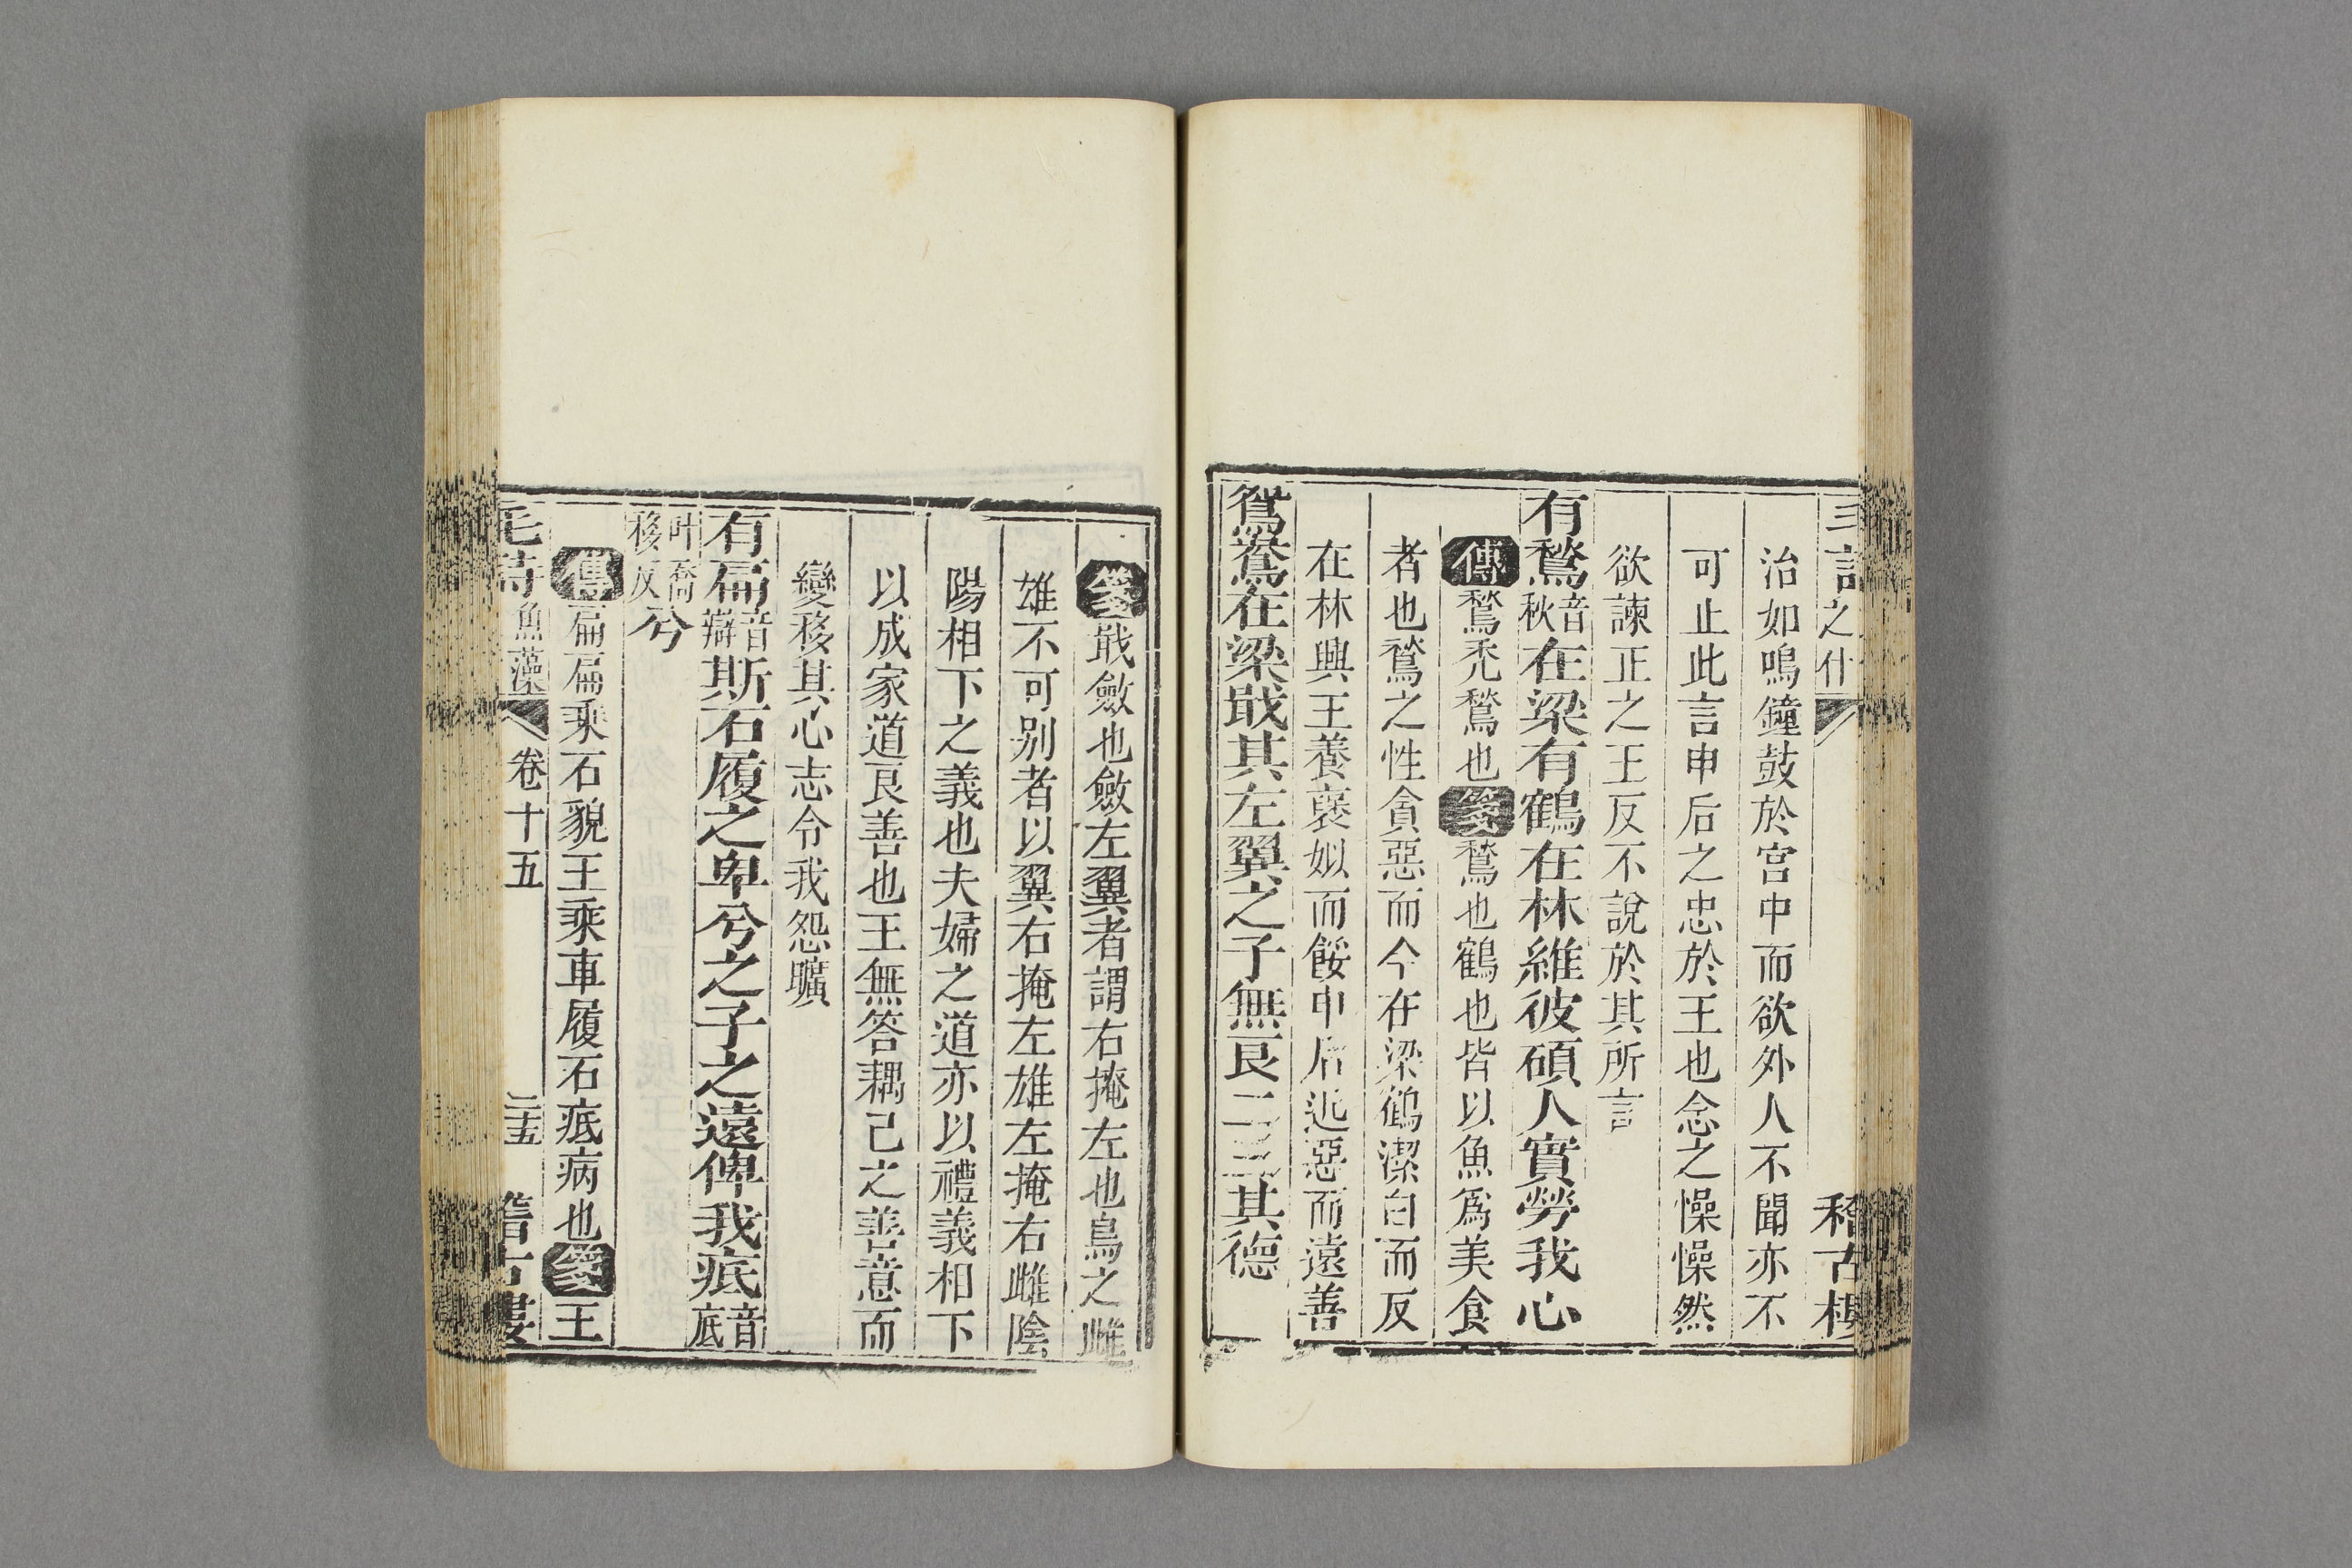 之什 稽古樓
治如鳴鐘鼓於宫中而欲外人不聞亦不
可止此言申后之忠於王也念之懆懆然
欲諫正之王反不說於其所言
有鶖音秋在梁有鶴在林維彼碩人實勞我心
傳鶖禿鶖也箋鶖也鶴也皆以魚爲美食
者也鶖之性貪惡而今在梁鶴潔白而反
在林興王養褒姒而餒申后近惡而遠善
鴛鴦在梁戢其左翼之子無良二三其德
箋戢斂也斂左翼者謂右掩左也鳥之雌
雄不可别者以翼右掩左雄左掩右雌陰
陽相下之義也夫婦之道亦以禮義相下
以成家道良善也王無答耦己之善意而
變移其心志令我怨曠
有扁音辯斯石履之卑兮之子之遠俾我疧音底
叶喬移反兮
傳扁扁乘石貌王乘車履石疧病也箋王
毛詩魚藻 卷十五 二十五 稽古樓